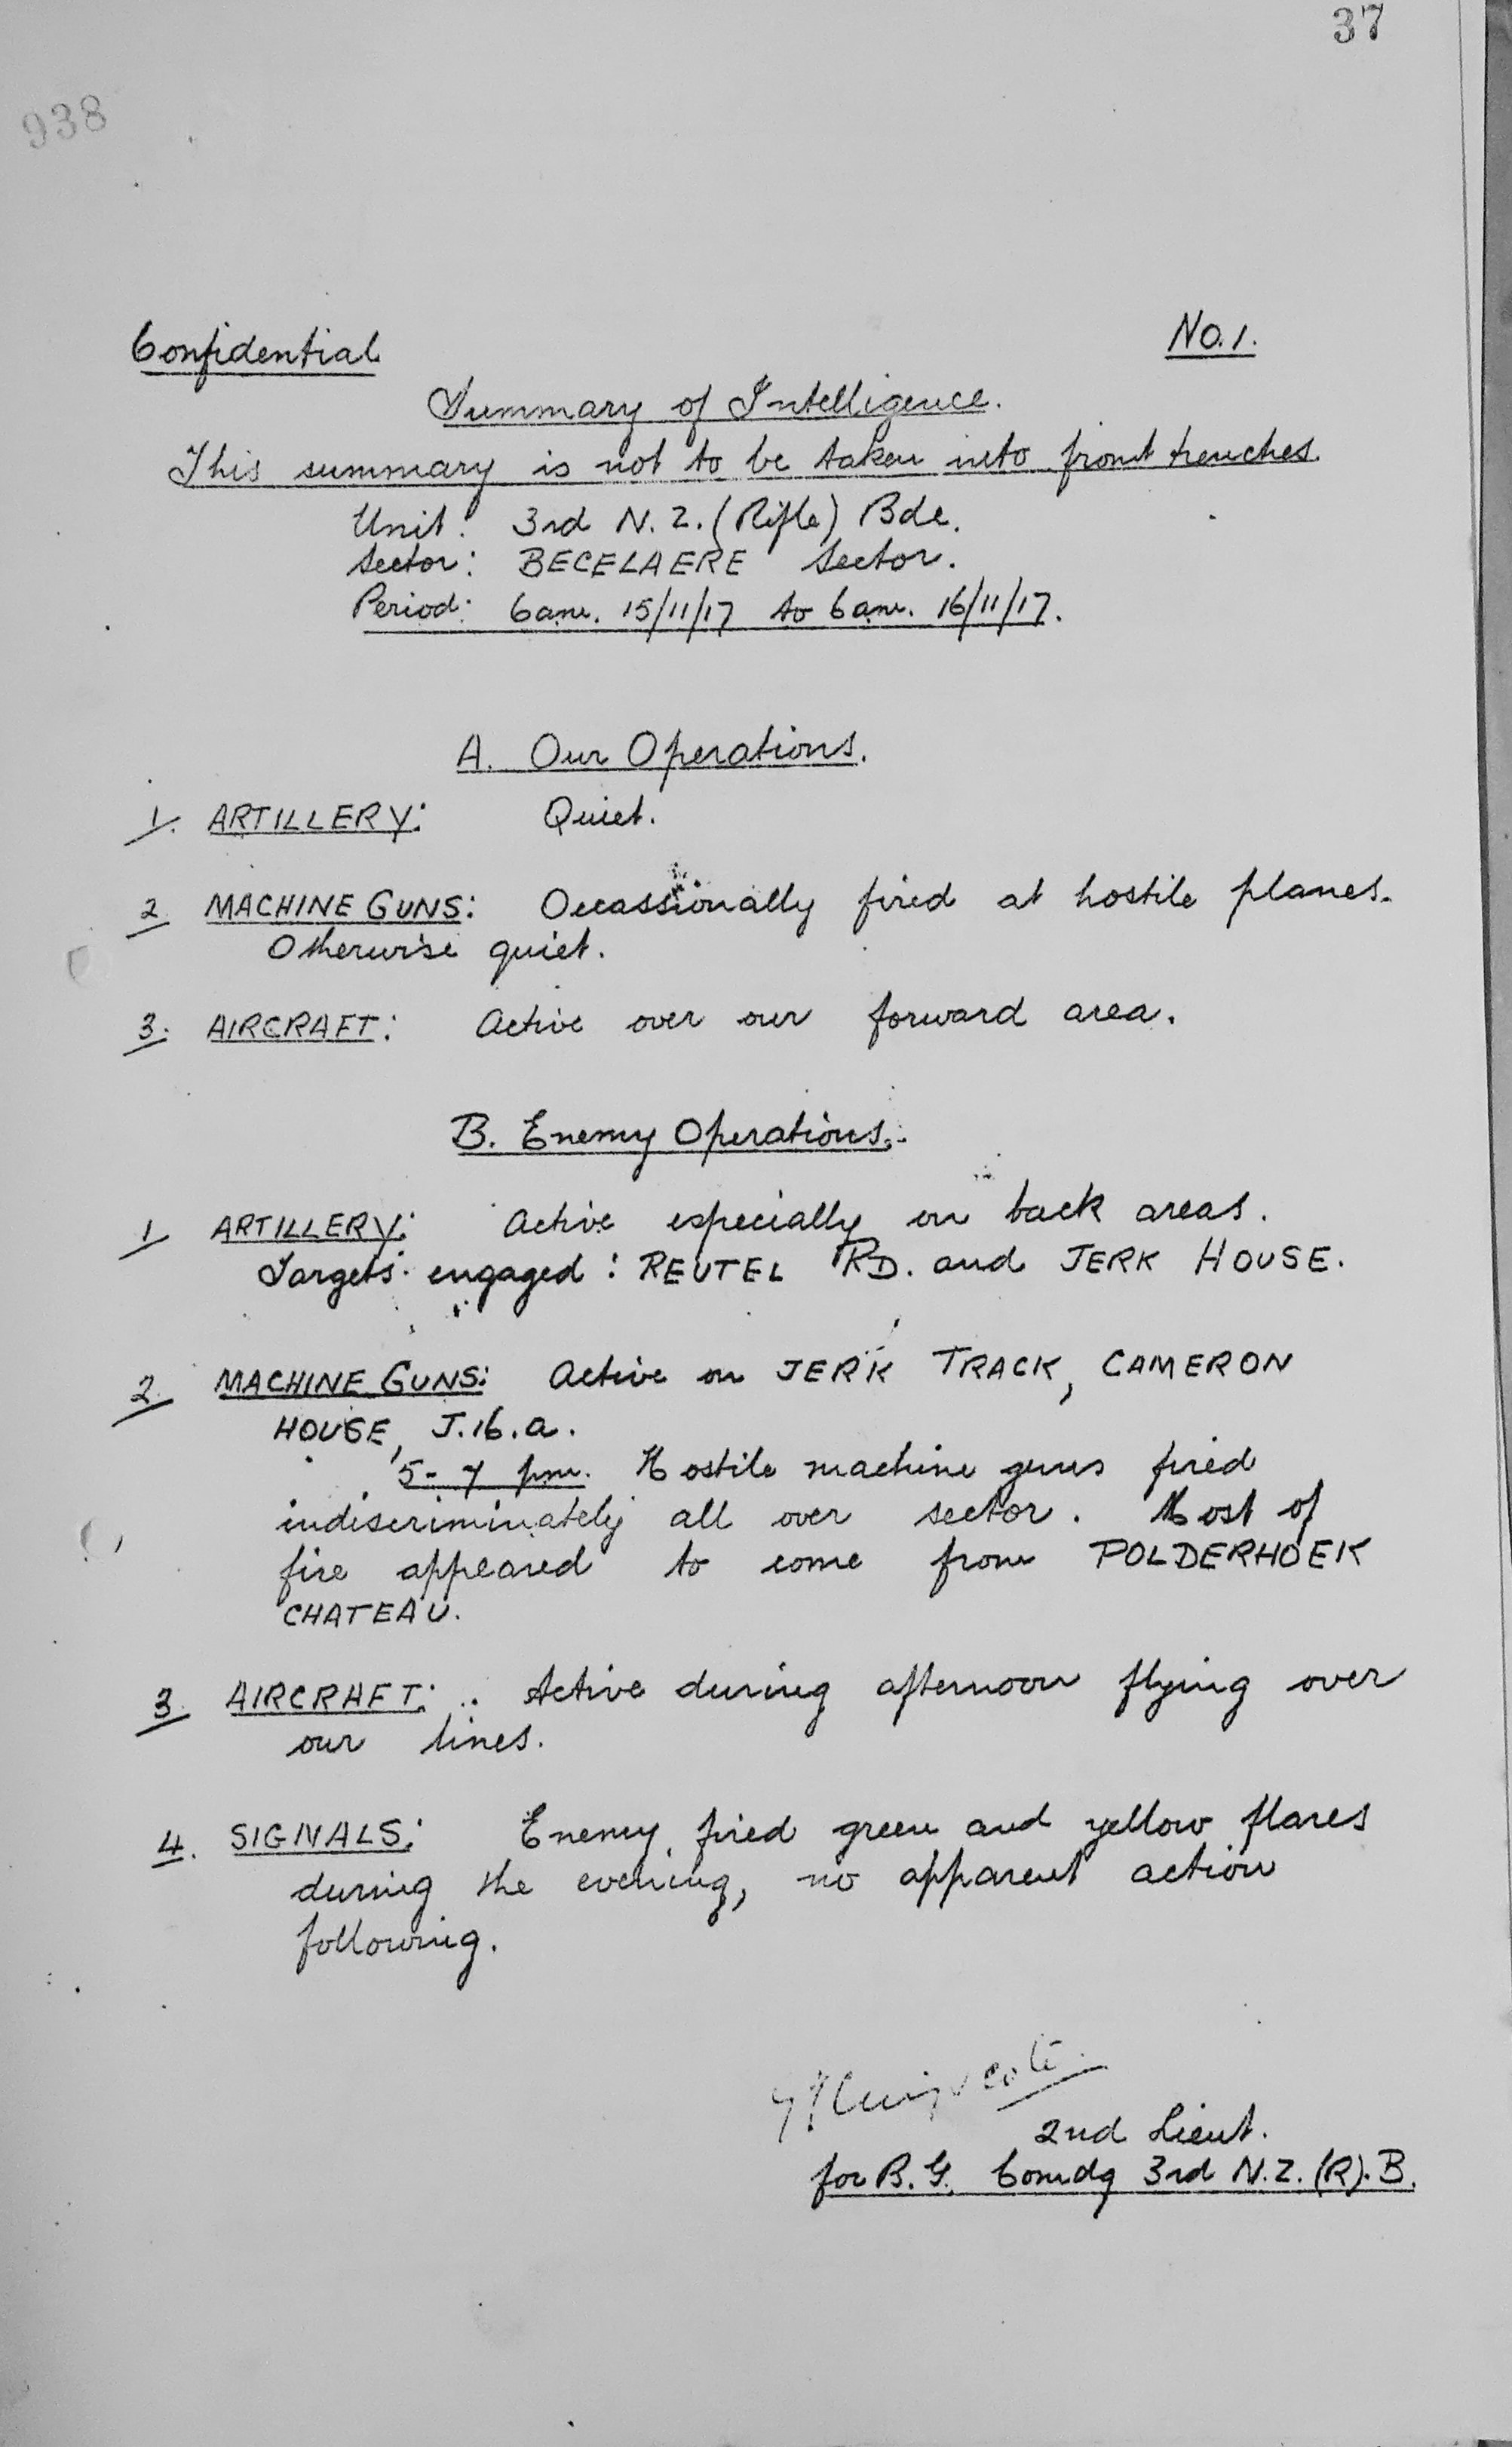 37
938
Confidential
No.1.
Summary of Intelligence.
This summary is not to be taken into front trenches.
Unit: 3rd N.Z. (Rifle) Bde.
Sector: BECELAERE Sector.
Period: 6am. 15/11/17 to 6am. 16/11/17.
A. Our Operations.
1. ARTILLERY: Quiet.
2 MACHINE GUNS: Occassionally fired at hostile planes.
Otherwise quiet.
3. AIRCRAFT: Active over our forward area.
B. Enemy Operations.
1 ARTILLERY: Active especially on back areas.
Targets engaged: REUTEL RD. and JERK HOUSE.
2. MACHINE GUNS: Active on JERK TRACK, CAMERON
HOUSE, J.16.a.
5-7 pm. Hostile machine guns fired
indiscriminately all over sector. Most of
fire appeared to come from POLDERHOEK
CHATEAU.
3. AIRCRAFT: Active during afternoon flying over
our lines.
4. SIGNALS: Enemy fired green and yellow flares
during the evening, no apparent action
following.
2nd Lieut.
for B.G. Comdg 3rd N.Z.(R).B.